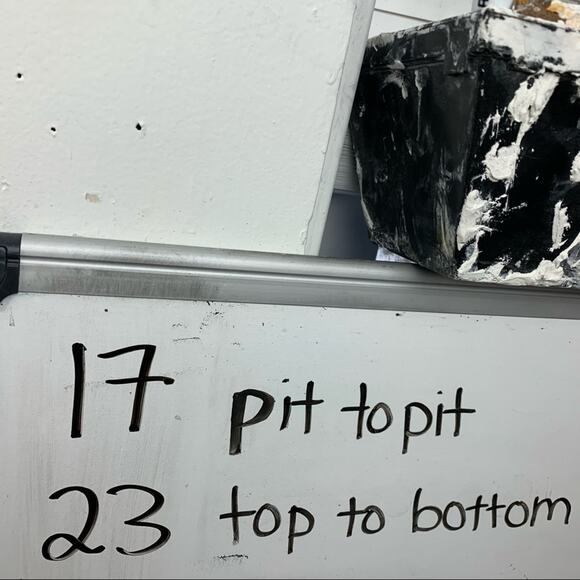 17 pit to pit
23 top to bottom